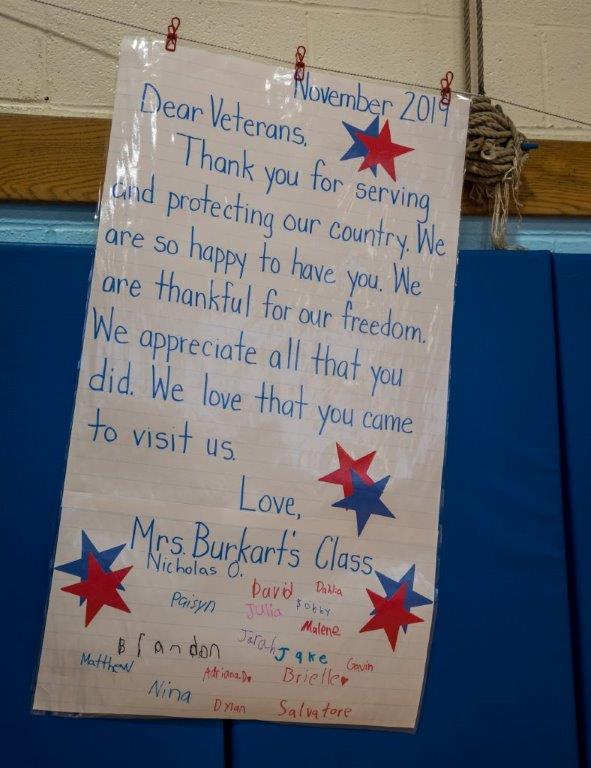 November 2019
Dear Veterans,
Thank you for serving
and protecting our country. We
are so happy to have you. We
are thankful for our freedom.
We appreciate all that you
did. We love that you came
to visit us.
Love,
Mrs. Burkart's Class
Nicholas O.
David Dahlia
Paisyn Julia Bobby
Malene
Brandon Jarah Jake
Matthew Adriana.D Brielle Gavin
Nina Dylan Salvatore